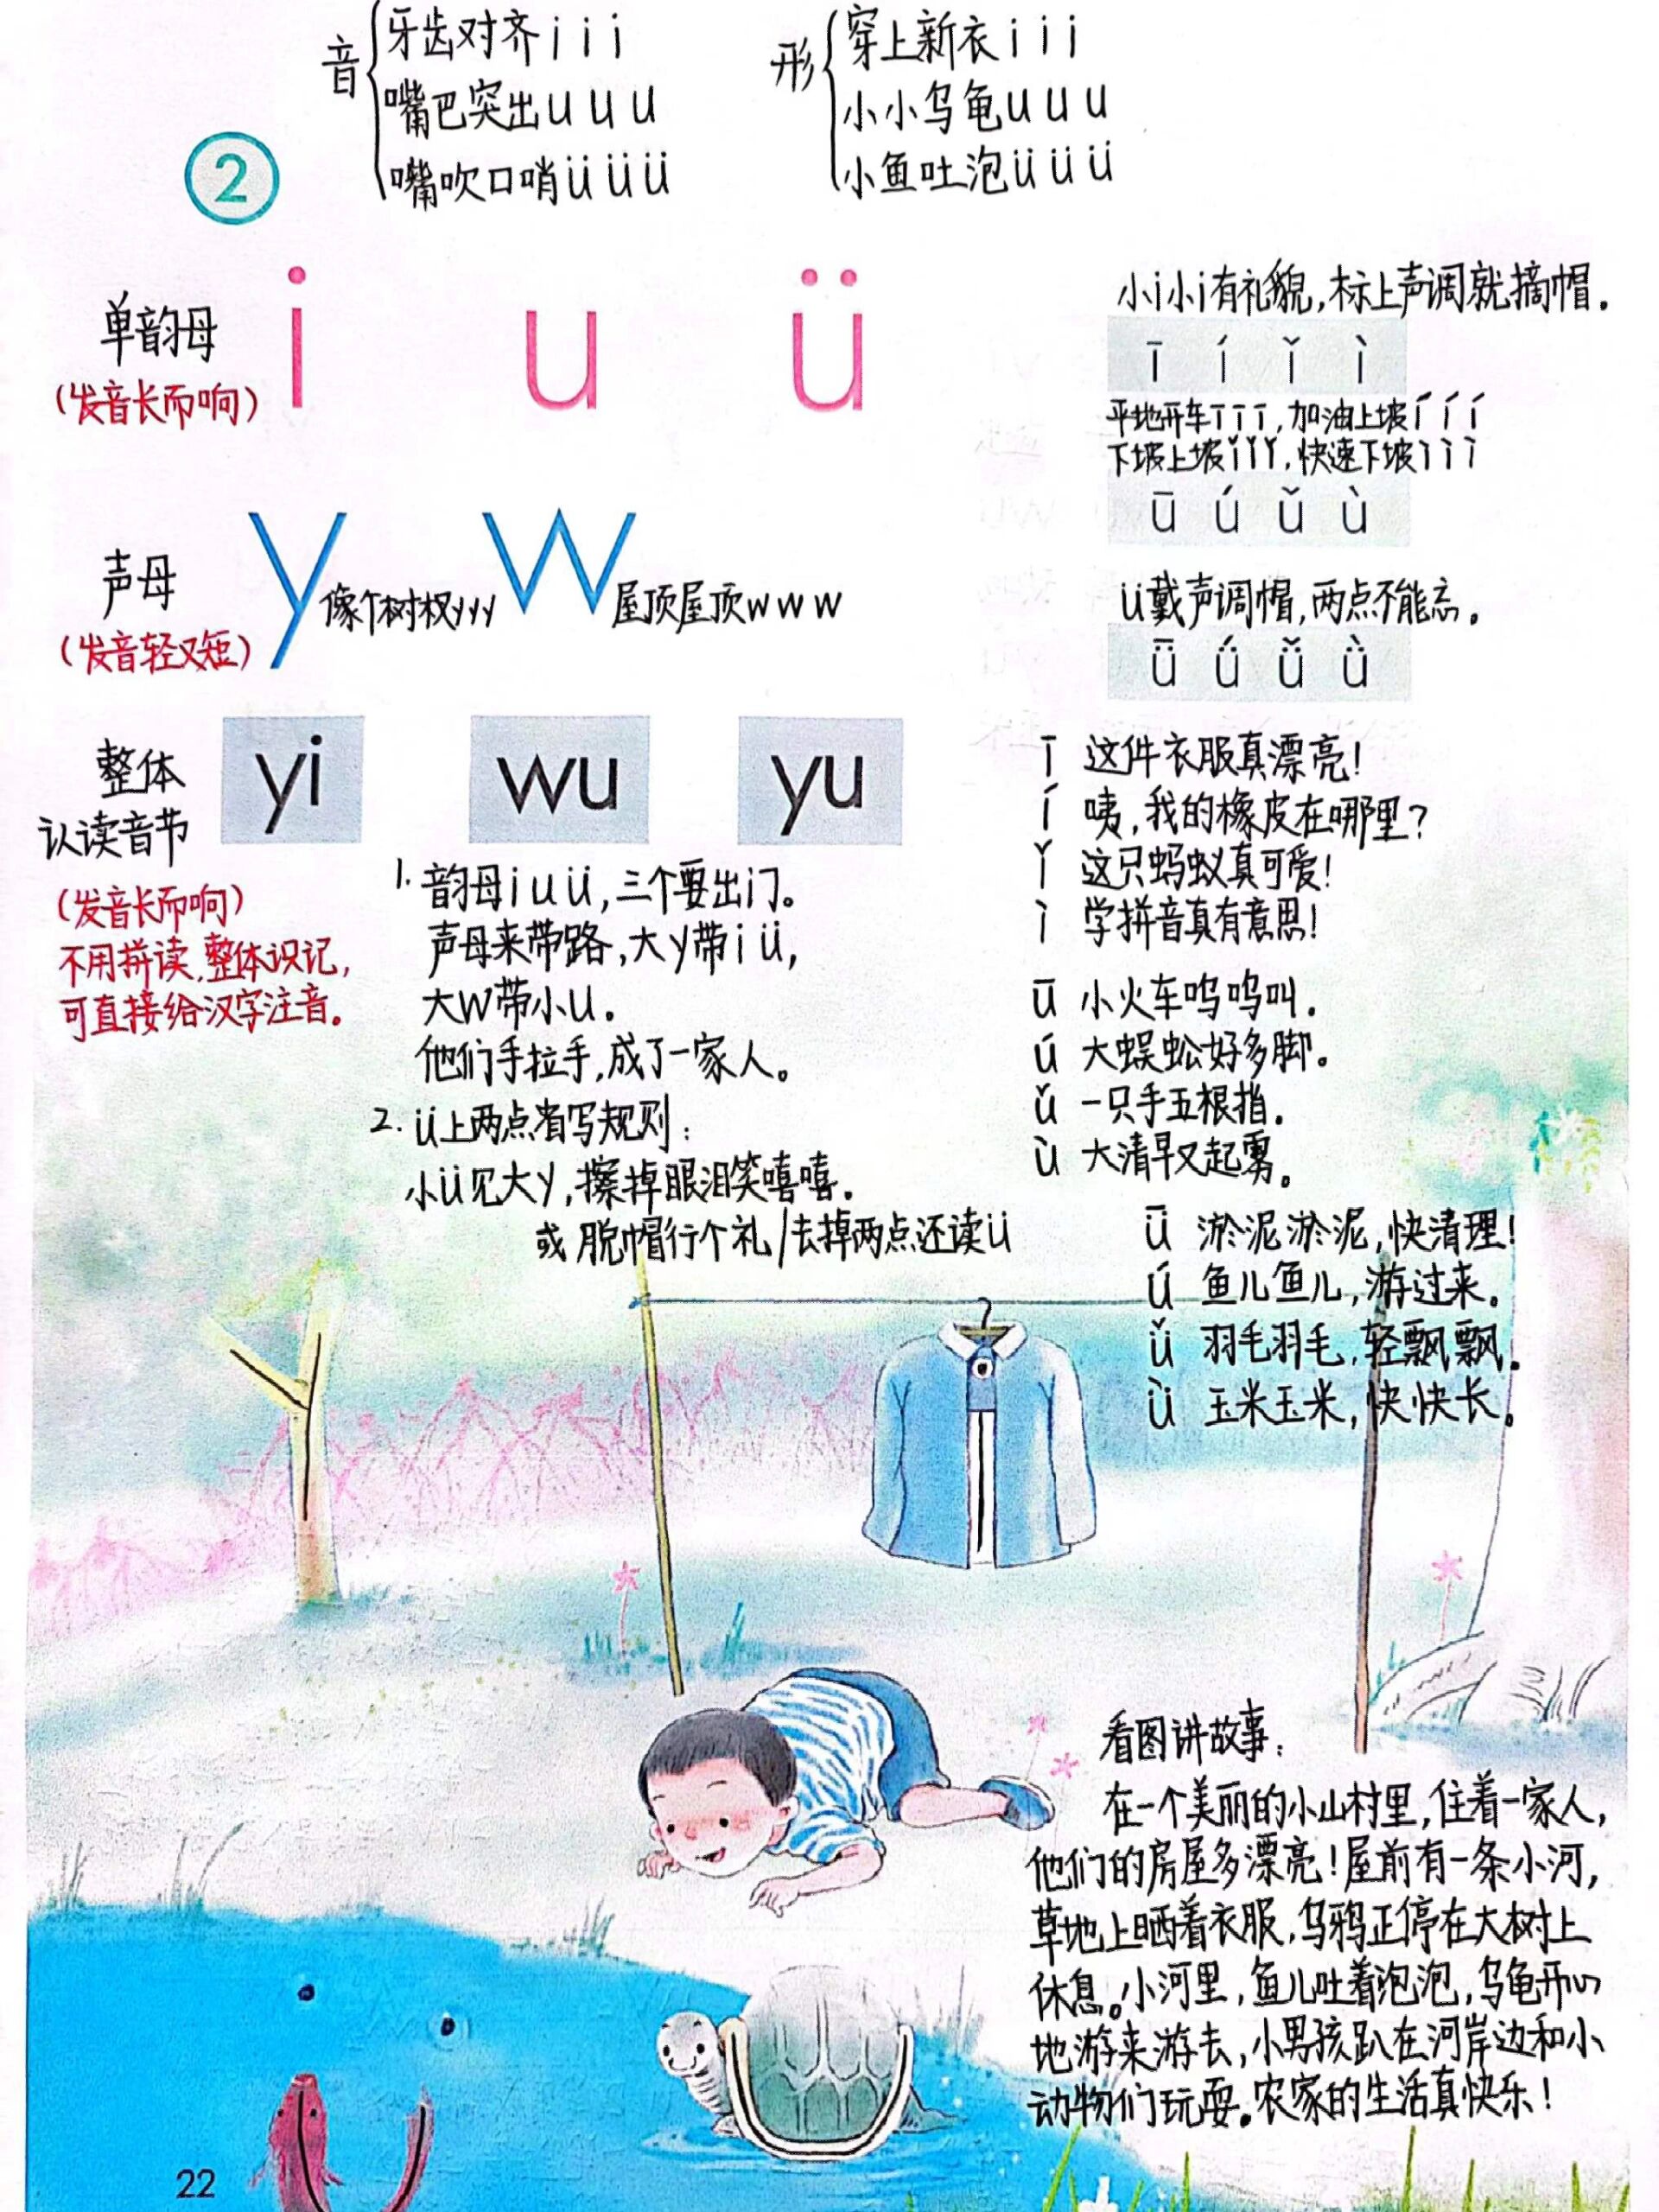 音 牙齿对齐 i i i
嘴巴突出 u u u
嘴吹口哨 ü ü ü
形 穿上新衣 i i i
小小乌龟 u u u
小鱼吐泡 ü ü ü
2
单韵母
(发音长而响)
i u ü
小i小i有礼貌,标上声调就摘帽.
ī í ǐ ì
平地开车 ī ī ī, 加油上坡 í í í
下坡上坡 ǐ ǐ ǐ, 快速下坡 ì ì ì
ū ú ǔ ù
ü戴声调帽,两点不能忘.
ǖ ǘ ǚ ǜ
声母
(发音轻又短)
y 像个树杈yyy w 屋顶屋顶w w w
整体
认读音节
(发音长而响)
不用拼读,整体识记,
可直接给汉字注音.
yi wu yu
1. 韵母i u ü,三个要出门。
声母来带路,大y带i ü,
大w带小u.
他们手拉手,成了一家人。
2. ü上两点省写规则:
小ü见大y,擦掉眼泪笑嘻嘻.
或 脱帽行个礼/去掉两点还读ü
ī 这件衣服真漂亮!
í 咦,我的橡皮在哪里?
ǐ 这只蚂蚁真可爱!
ì 学拼音真有意思!
ū 小火车呜呜叫.
ú 大蜈蚣好多脚.
ǔ 一只手五根指.
ù 大清早又起雾。
ǖ 淤泥淤泥,快清理!
ǘ 鱼儿鱼儿,游过来。
ǚ 羽毛羽毛,轻飘飘.
ǜ 玉米玉米,快快长。
看图讲故事:
在一个美丽的小山村里,住着一家人,
他们的房屋多漂亮!屋前有一条小河,
草地上晒着衣服,乌鸦正停在大树上
休息。小河里,鱼儿吐着泡泡,乌龟开心
地游来游去,小男孩趴在河岸边和小
动物们玩耍。农家的生活真快乐!
22